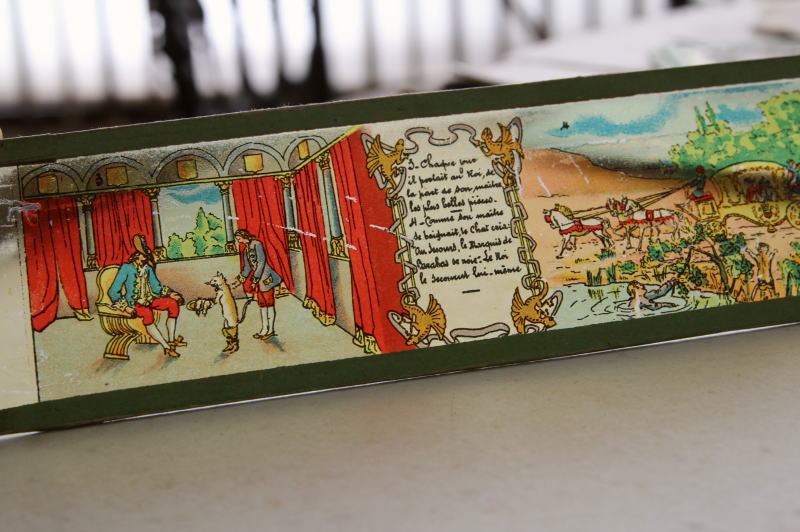 3. Chaque jour
il portait au Roi, de
la part de son maître
les plus belles pièces.
4. Comme son maître
se baignait, le Chat cria:
Au Secours, le Marquis de
Carabas se noie. Le Roi
le secourut lui-même